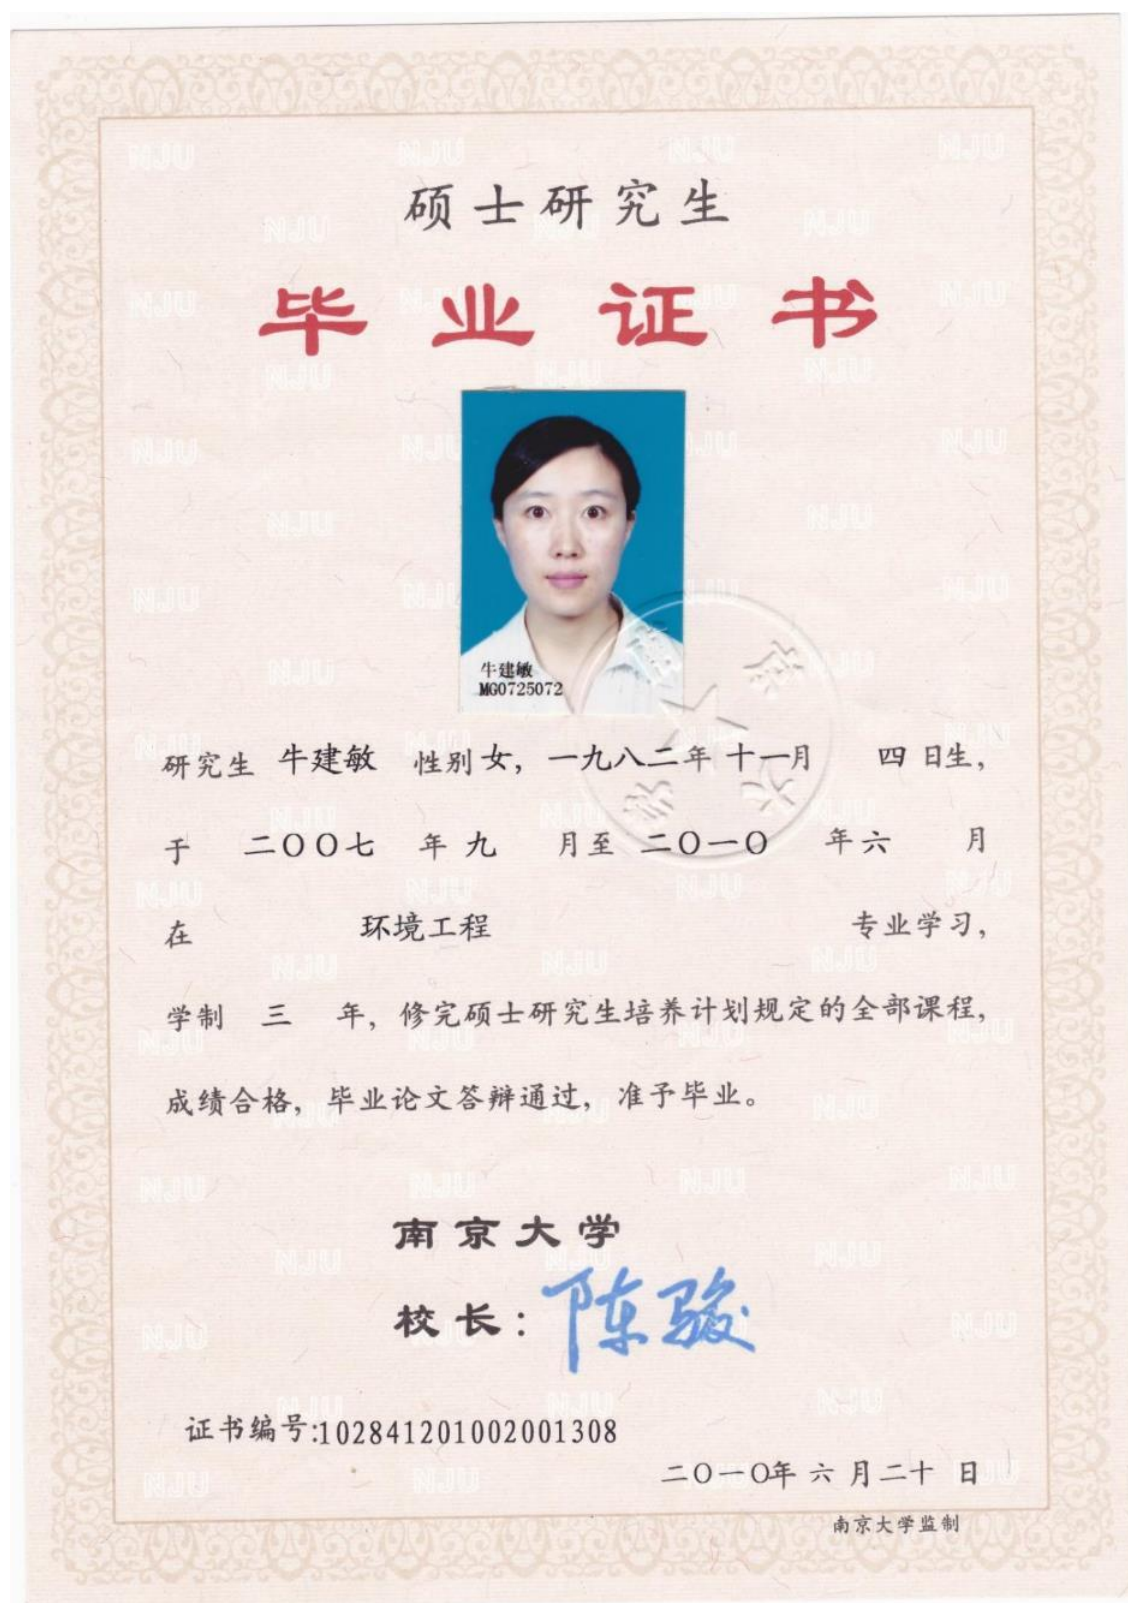 硕士研究生
毕业证书
牛建敏
MG0725072
研究生 牛建敏 性别 女，一九八二年 十一月 四 日生，
于 二〇〇七 年 九 月至 二〇一〇 年 六 月
在 环境工程 专业学习，
学制 三 年，修完硕士研究生培养计划规定的全部课程，
成绩合格，毕业论文答辩通过，准予毕业。
南京大学
校长：陈骏
证书编号:102841201002001308
二〇一〇年 六 月二十 日
南京大学监制
NJU